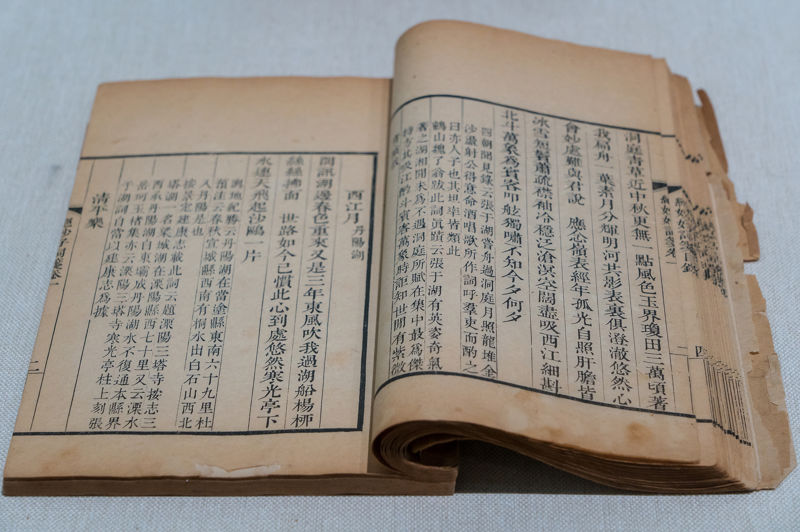 洞庭青草近中秋更無一點風色玉界瓊田三萬頃著
我扁舟一葉素月分輝明河共影表裏俱澄澈悠然心
會妙處難與君說 應念嶺表經年孤光自照肝膽皆
冰雪短鬢蕭疏襟袖冷穩泛滄溟空闊盡吸西江細斟
北斗萬象為賓客叩舷獨嘯不知今夕何夕
四朝聞見錄云張于湖嘗舟過洞庭月照龍堆金
沙盪射公得意命酒唱歌所作詞呼羣吏而酌之
曰亦人子也其坦率皆類此
鶴山魏了翁跋此詞真蹟云張于湖有英姿奇氣
著之湖湘間未為不遇洞庭所賦在集中最為傑
特方其吸江酌斗賓客萬象時詎知世間有紫微
青瑣哉
西江月 丹陽湖
問訊湖邊春色重來又是三年東風吹我過湖船楊柳
絲絲拂面 世路如今已慣此心到處悠然寒光亭下
水連天飛起沙鷗一片
輿地紀勝云丹陽湖在當塗縣東南六十九里杜
預注云春秋宣城縣西南有桐水出白石山西北
入丹陽是也
按景定建康志載此詞云題溧陽三塔寺按志三
塔湖一名梁城湖在溧陽縣西七十里又云溧水
西承丹陽湖自東壩成丹陽湖水不復通本縣界
岳珂玉楮集亦云溧陽三塔寺寒光亭柱上刻張
于湖詞自當以建康志為據
清平樂